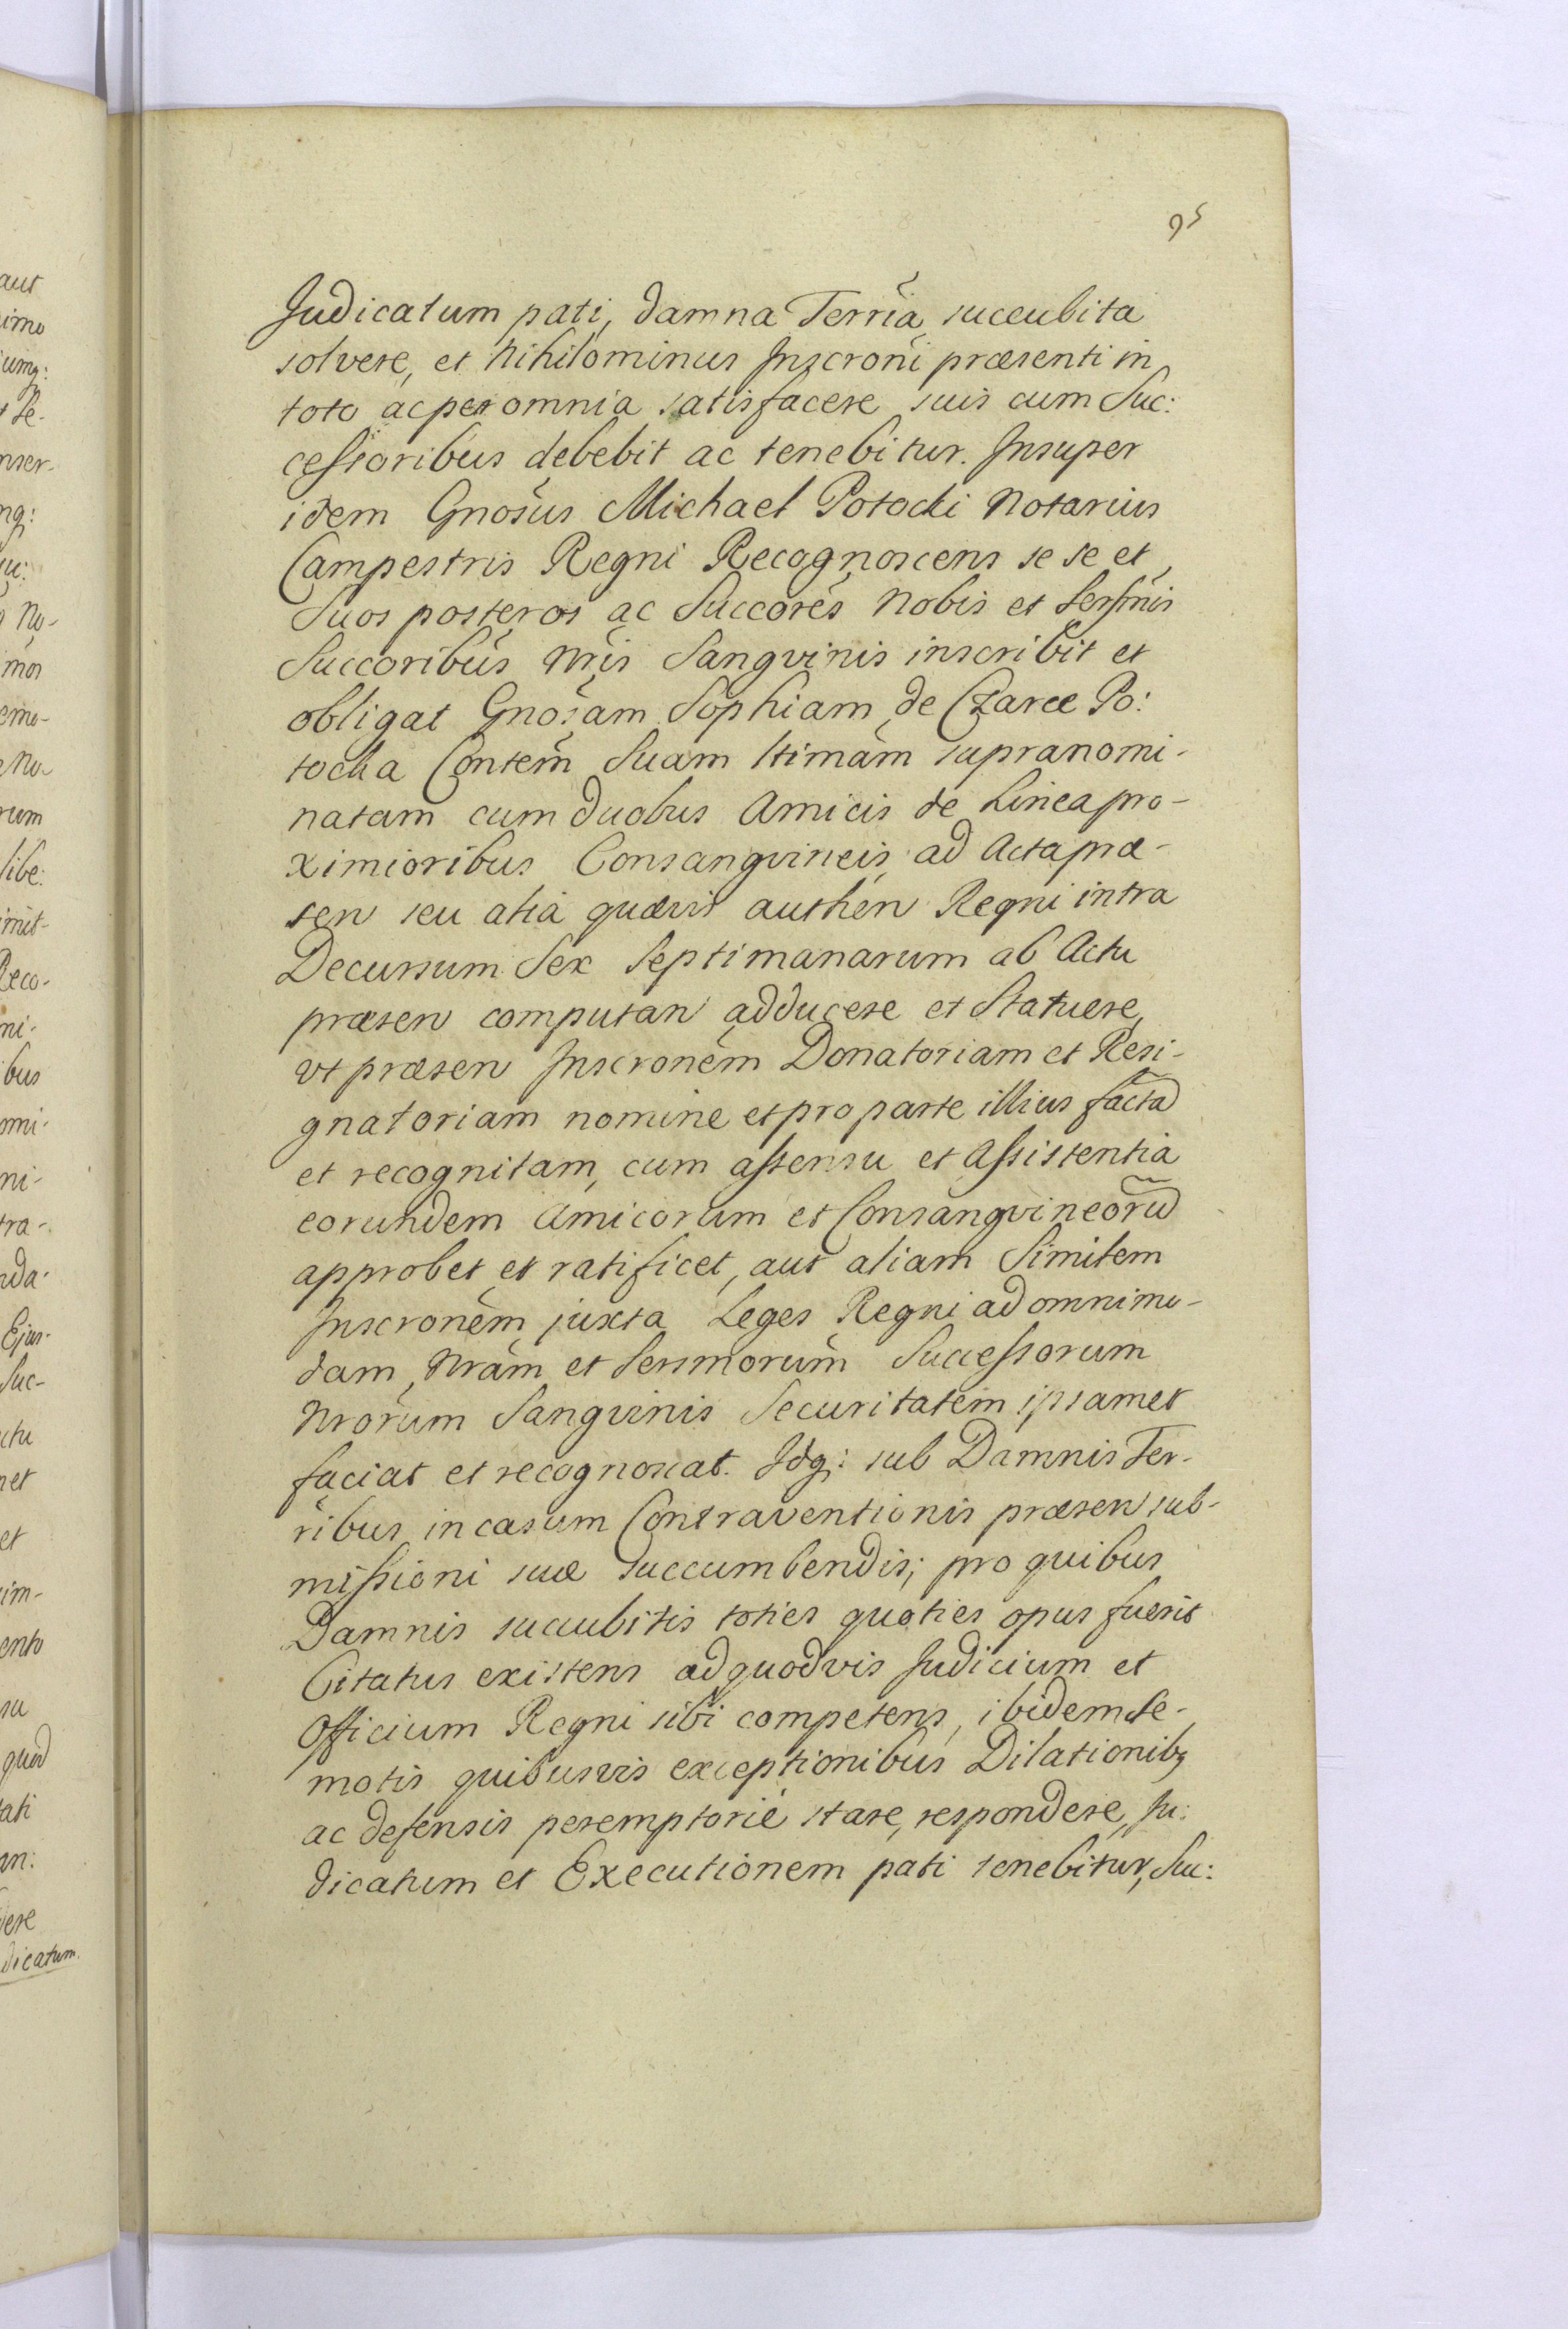 95
Judicatum pati, damna Terria succubita
solvere, et Nihilominus Inscroni præsenti in
toto ac per omnia satisfacere suis cum Suc:
cessoribus debebit ac tenebitur. Insuper
idem Gnosus Michael Potocki Notarius
Campestris Regni Recognoscens se se et
Suos posteros ac Succores Nobis et Sersmis
Succoribus Nris Sangvinis inscribit et
obligat Gnosam Sophiam de Czarce Po:
tocka Contem Suam ltimam supranomi-
natam cum duobus Amicis de Linea pro-
ximioribus Consangvineis ad Acta præ-
sen seu alia quævis authen Regni intra
Decursum Sex Septimanarum ab Actu
præsen computan adducere et Statuere,
vt præsen Inscronem Donatoriam et Resi-
gnatoriam nomine et pro parte illius factã
et recognitam, cum assensu et Assistentia
eorundem Amicorum et Consangvineorũ
approbet et ratificet, aut aliam Similem
Inscronem juxta Leges Regni ad omnimo-
dam Nram et Sersmorum Successorum
Nrorum Sangvinis Securitatem ipsamet
faciat et recognoscat. Idq: sub Damnis Ter-
ribus in casum Contraventionis præsen sub-
missioni suæ succumbendis; pro quibus
Damnis succubitis toties quoties opus fuerit
Citatus existens ad quodvis Judicium et
Officium Regni sibi competens, ibidem Se-
motis quibusvis exceptionibus Dilationibq
ac defensis peremptorie stare, respondere, Ju:
dicatum et Executionem pati tenebitur, Suc:
aut
dicatum.